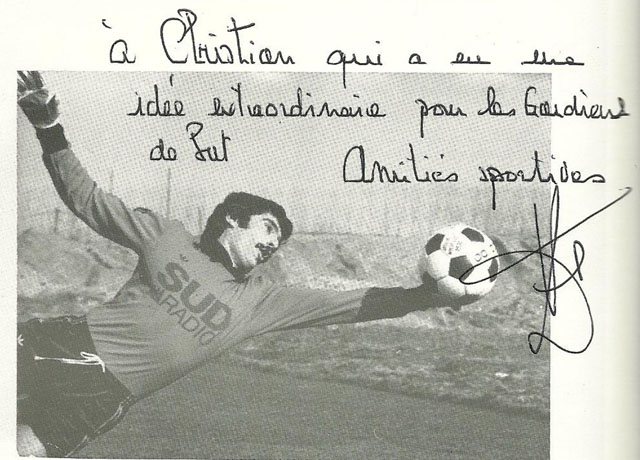 à Christian qui a eu une
idée extraordinaire pour les Gardiens
de But
Amitiés sportives
SUD
RADIO